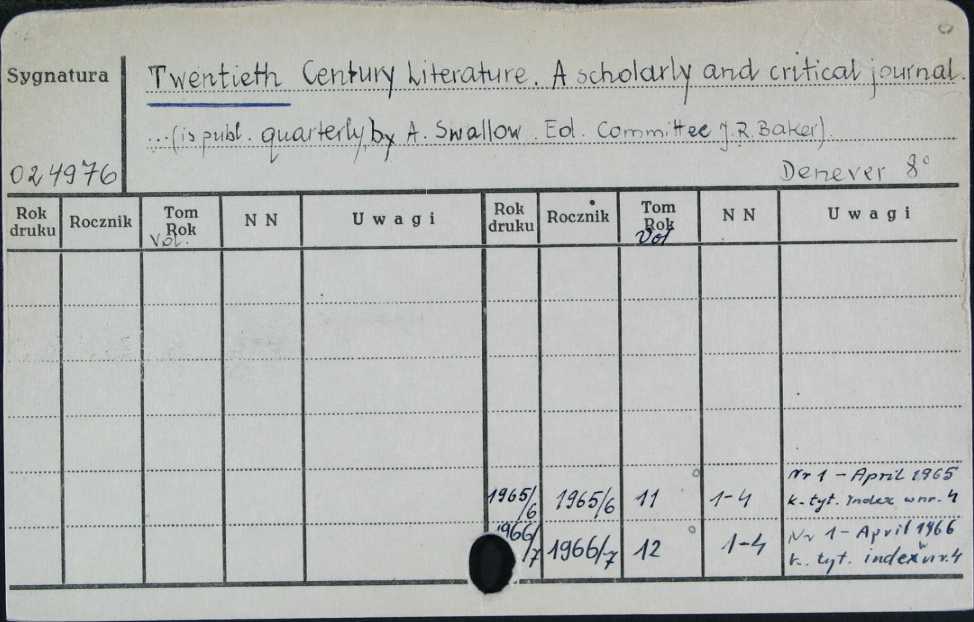 Sygnatura
Twentieth Century Literature. A scholarly and critical journal.
...(is publ. quarterly, by A. Swallow. Ed. Committee J.R. Baker).
024976
Denever 8°
Rok druku Rocznik Tom Rok Vol. NN Uwagi Rok druku Rocznik Tom Rok Vol NN Uwagi
Nr 1 - April 1965
1965/6 1965/6 11 1-4 k. tyt. index w nr. 4
Nr 1 - April 1966
1966/7 1966/7 12 1-4 k. tyt. index w nr. 4